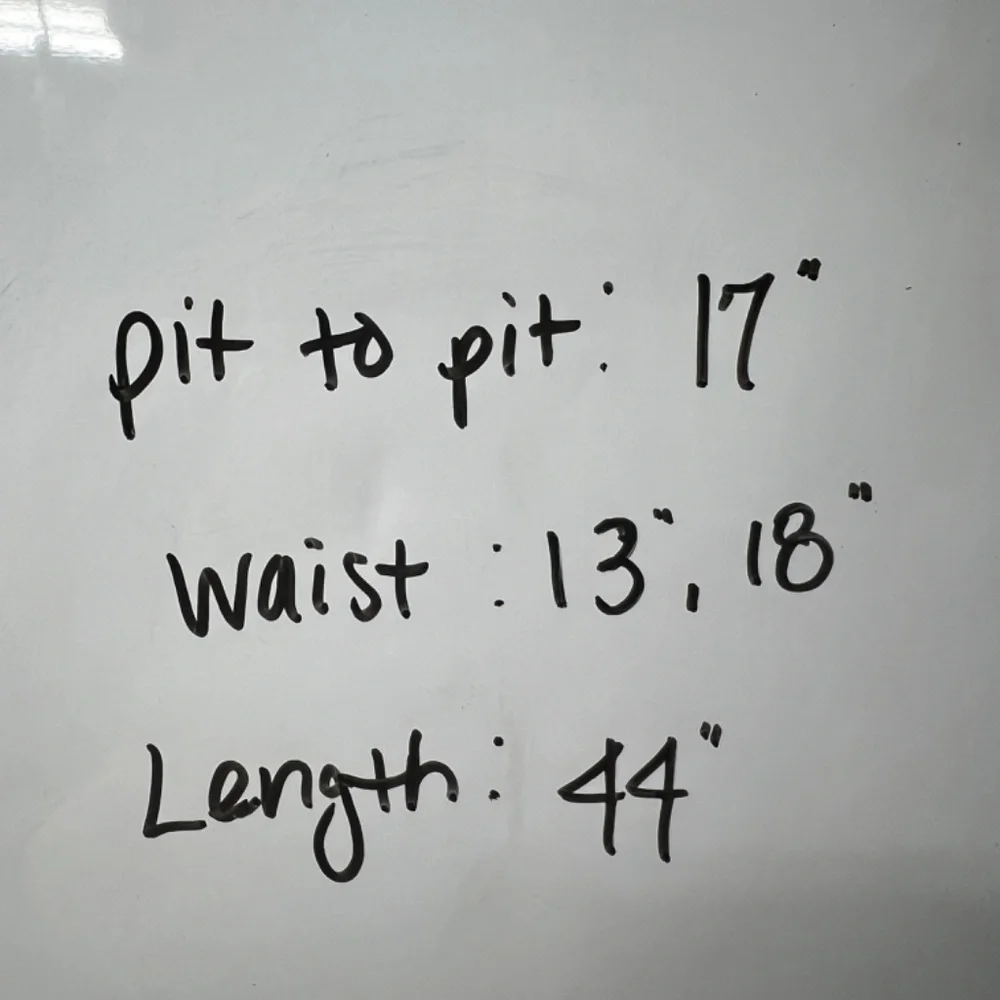 pit to pit: 17"
waist : 13", 18"
Length: 44"